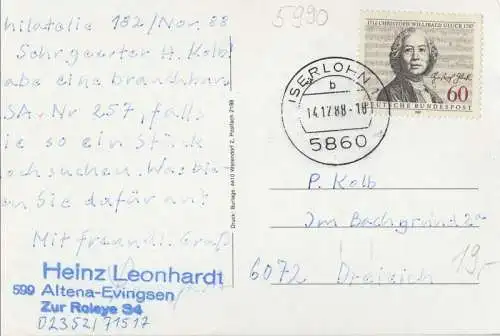 Philatelie 182/Nov. 88
Sehr geehrter H. Kolb!
abe eine brauchbare
SA-Nr 257, falls
ie so ein Stück
och suchen. Was bie-
en Sie dafür an?
Mit freundl. Gruß
Heinz Leonhardt
599 Altena-Evingsen
Zur Roleye 34
02352/71517
Druck: Burlage, 4410 Warendorf 2, Postfach 2188
5990
1714 CHRISTOPH WILLIBALD GLUCK 1787
60
DEUTSCHE BUNDESPOST
ISERLOHN 1
b
14.12.88-18
5860
P. Kolb
Im Bachgrund 2a
6072 Dreieich
19,-